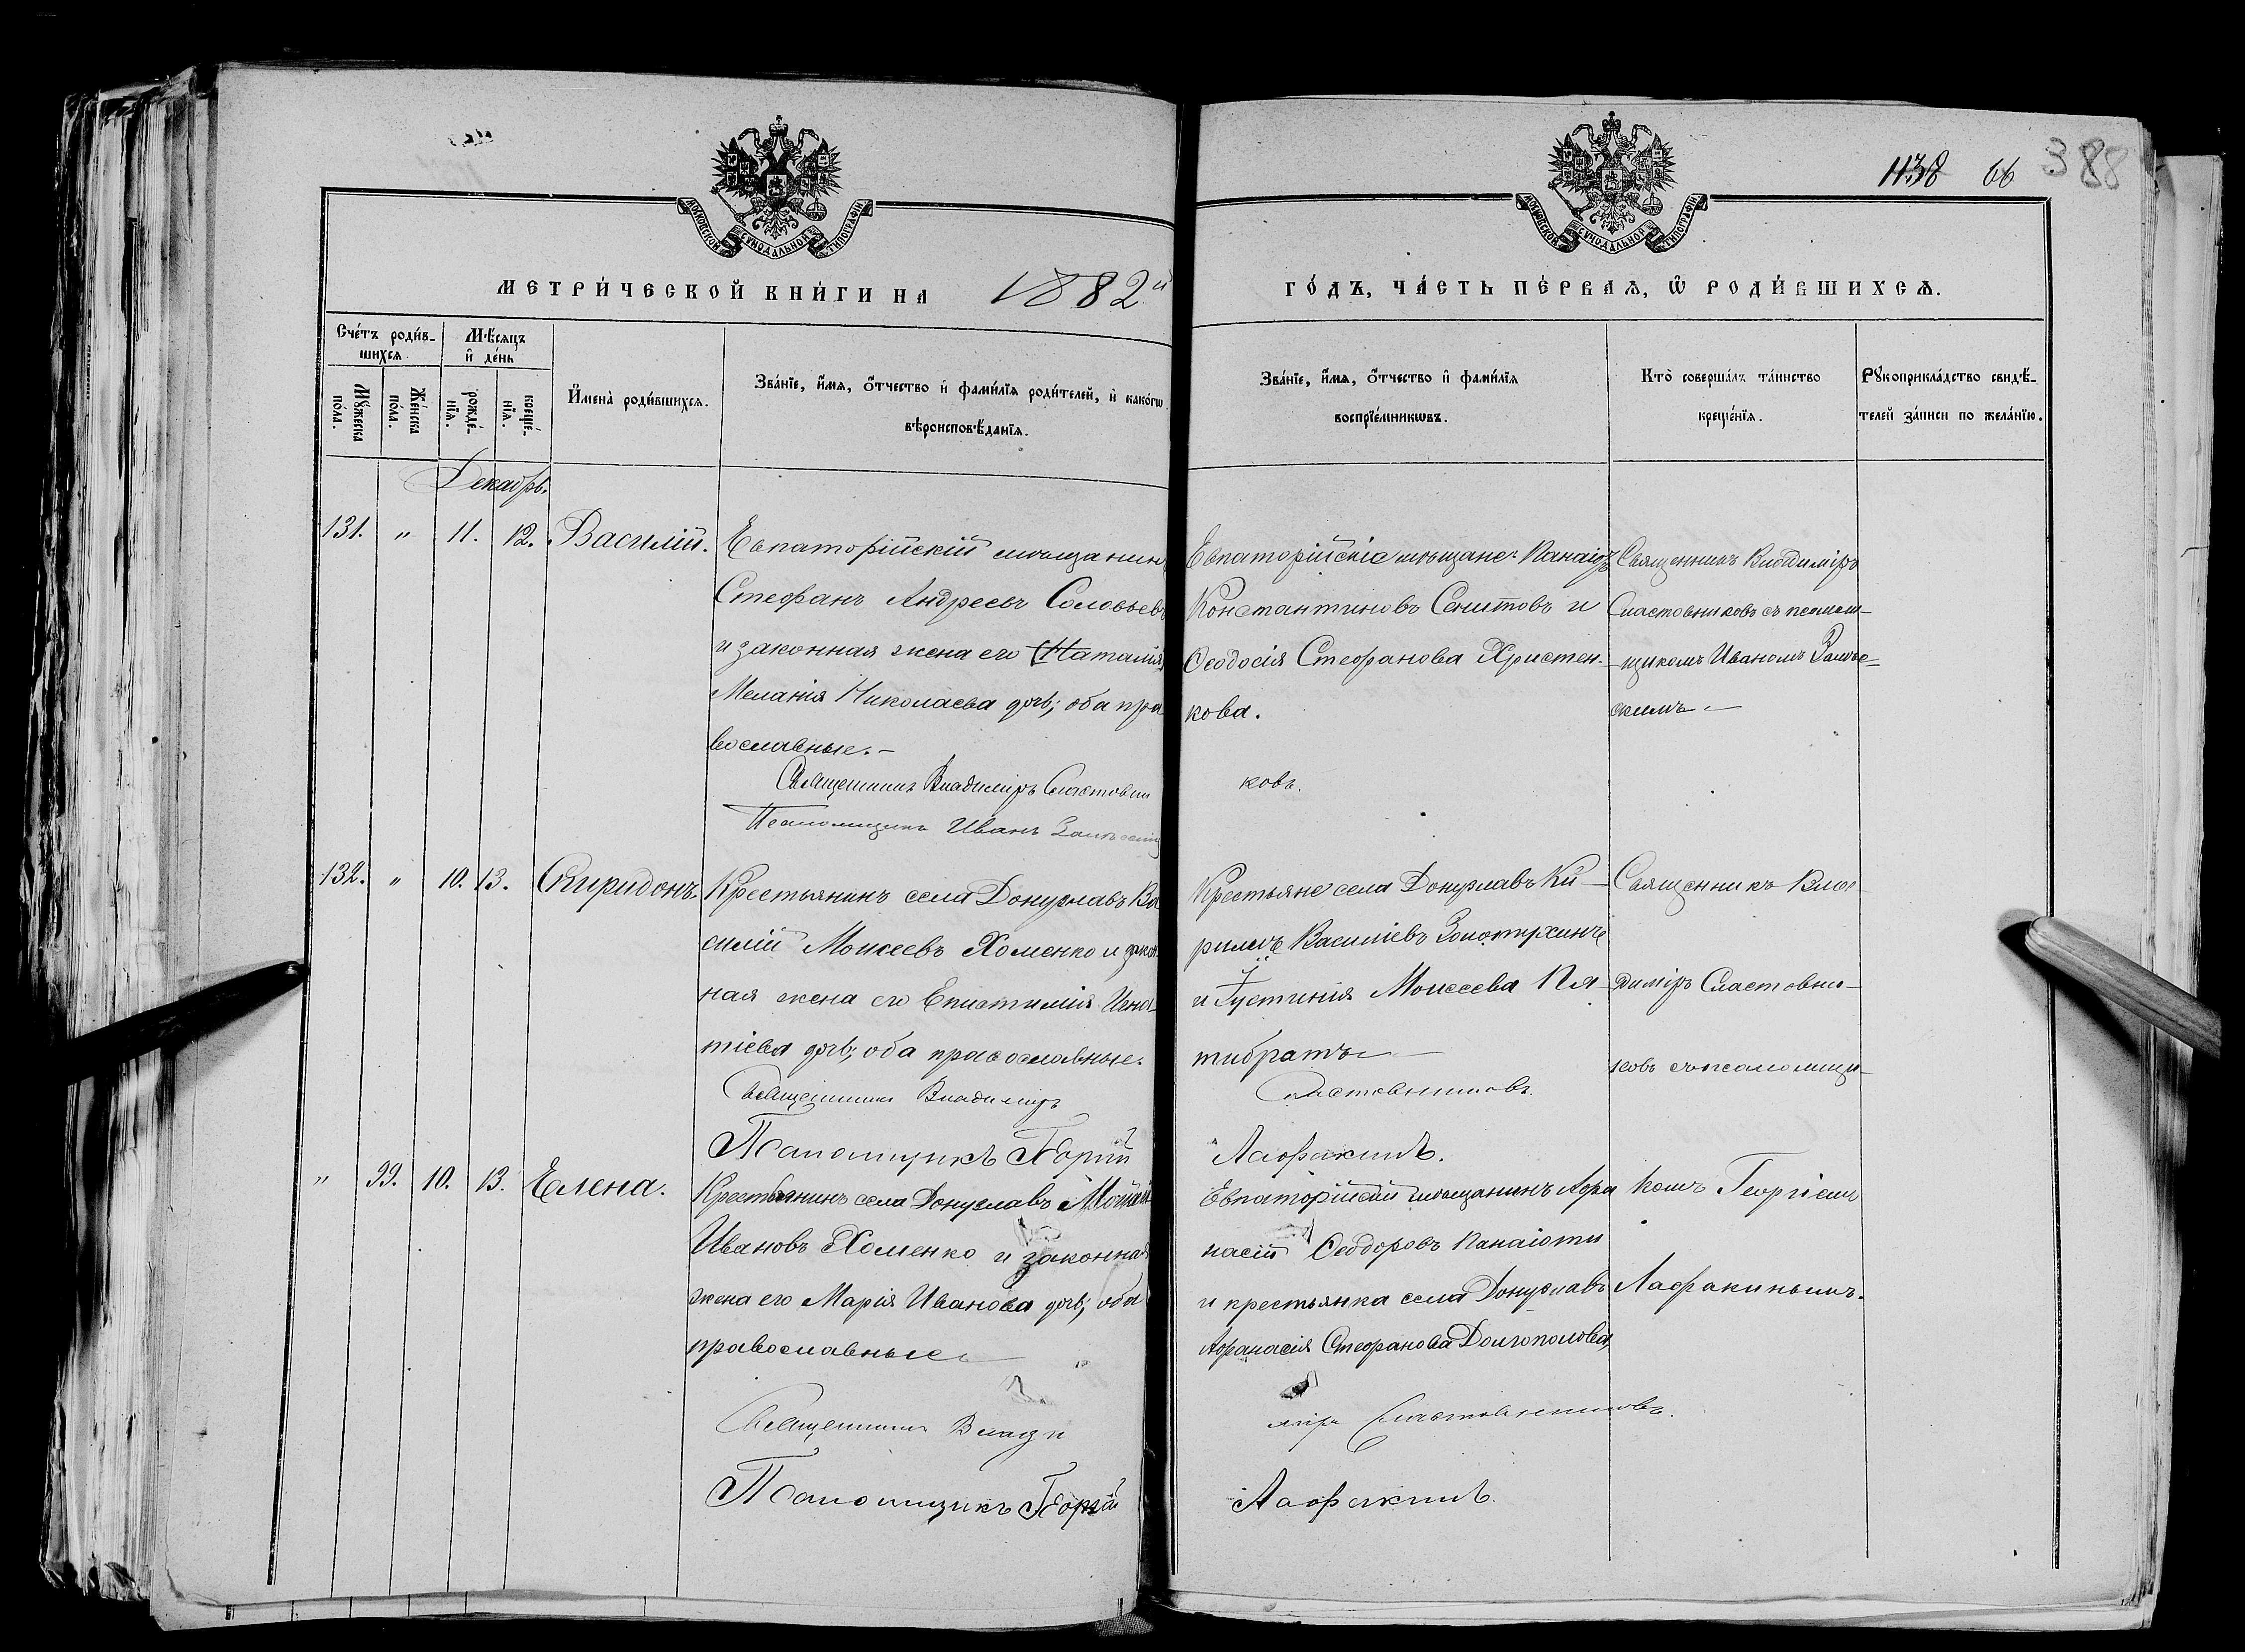 1138 66 388
МОСКОВСКОЙ СУНОДАЛЬНОЙ ТИПОГРАФІИ
МОСКОВСКОЙ СУНОДАЛЬНОЙ ТИПОГРАФІИ
МЕТРИ́ЧЕСКОЙ КНИ́ГИ НА 1882й
ГО́ДЪ, ЧА́СТЬ ПЕ́РВАѦ, Ѡ РОДИ́ВШИХСѦ.
Сче́тъ роди́в-
шихсѧ.
Мꙋжеска по́ла.
Же́нска по́ла.
Мѣ́сѧцъ
и҆ де́нь
рожде́-
нїѧ.
креще́-
нїѧ.
И҆мена̀ роди́вшихсѧ.
Зва́нїе, и҆́мѧ, ѻ҆́тчество и҆ фами́лїѧ роди́телей, и҆ како́гѡ
вѣроисповѣ́данїѧ.
Зва́нїе, и҆́мѧ, ѻ҆́тчество и҆ фами́лїѧ
воспрїе́мникѡвъ.
Кто̀ соверша́лъ та́инство
креще́нїѧ.
Рꙋкоприкла́дство свидѣ́-
телей за́писи по жела́нїю.
Декабрь.
131. " 11. 12. Василій.
Евпаторійскій мѣщанинъ
Стефанъ Андреевъ Соловьевъ
и законная жена его (Наталія)
Меланія Николаева дочь; оба пра
вославные.-
Священникъ Владиміръ Сластовни
Псаломщикъ Иванъ Залѣсскій
Евпаторійскіе мѣщане: Панаіотъ
Константиновъ и
Ѳеодосія Стефанова Христен-
кова.
ковъ.
Священникъ Владиміръ
Сластовниковъ съ псалом-
щикомъ Иваномъ Залѣс-
скимъ.-
132. " 10. 13. Спиридонъ.
Крестьянинъ села Донузлавъ Ва
силій Моисеевъ Хоменко и закон
ная жена его Епистимія Игна-
тіева дочь; оба православные.
Священникъ Владиміръ
Псаломщикъ Георгій
Крестьяне села Донузлавъ Ки-
риллъ Васильевъ Золотухинъ
и Іустинія Моисеева Пя-
тибратъ
Сластовниковъ.
Лафакинъ.
Священникъ Вла-
диміръ Сластовни-
ковъ съ псаломщи-
комъ Георгіемъ
Лафакинымъ.
" 99. 10. 13. Елена.
Крестьянинъ села Донузлавъ Моисей
Ивановъ Хоменко и законная
жена его Марія Иванова дочь; оба
православные
Священникъ Влади
Псаломщикъ Георгій
Евпаторійскій мѣщанинъ Афа
насій Ѳеодоровъ Панаіоти
и крестьянка села Донузлавъ
Афанасія Стефанова Долгополова,
міръ Сластовниковъ.
Лафакинъ.